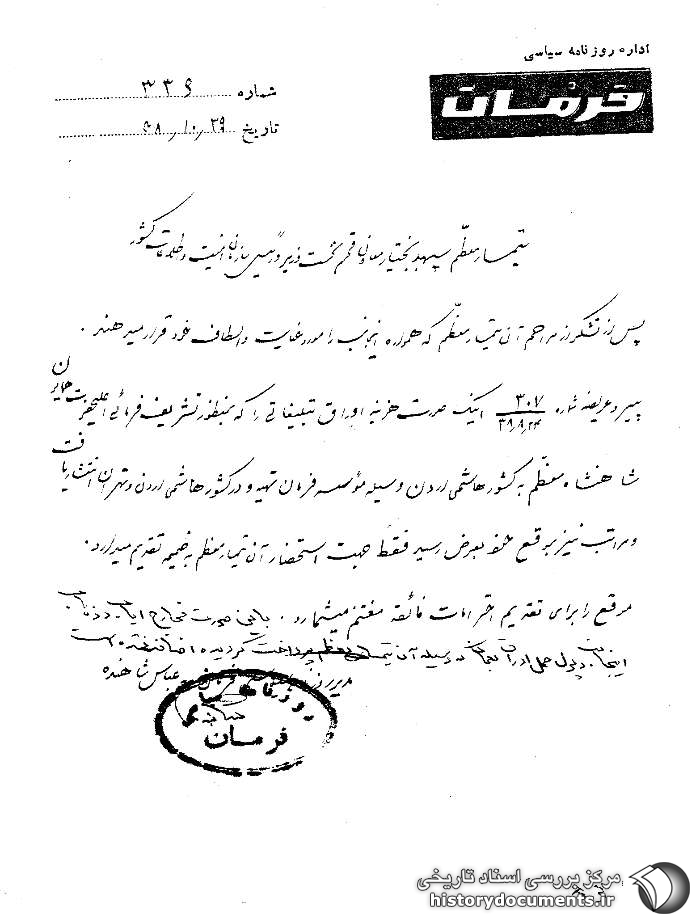 اداره روزنامه سیاسی
فرمان
شماره ۳۳۶
تاریخ ۳۸/۱۰/۲۹
تیمسار معظم سپهبد بختیار معاون محترم نخست وزیر و رئیس سازمان امنیت و اطلاعات کشور
پس از تشکر از مراحم آن تیمسار معظم که همواره اینجانب را مورد عنایت و الطاف خود قرار میدهند .
پیرو عریضه شماره ۳۰۷ ۳۸/۸/۲۴ اینک صورت هزینه اوراق تبلیغاتی را که بمنظور تشریف فرمائی اعلیحضرت همایون
شاهنشاه معظم به کشور هاشمی اردن وسیله مؤسسه فرمان تهیه و در کشور هاشمی اردن و تهران انتشار یافت
و مراتب نیز بموقع خود بعرض رسید فقط جهت استحضار آن تیمسار معظم به ضمیمه تقدیم میدارد .
موقع را برای تقدیم احترامات فائقه مغتنم میشمارد . صورت مخارج ایاب و ذهاب
اینجانب و پول حمل اوراق که وسیله آن تیمسار معظم پرداخت گردیده اضافه نشده است
مدیر روزنامه فرمان عباس شاهنده
روزنامه سیاسی
فرمان
مرکز بررسی اسناد تاریخی
historydocuments.ir